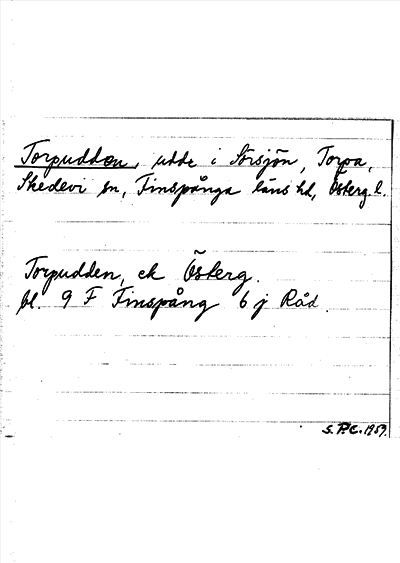 Torpudden, udde i Sörsjön, Torpa,
Skedevi sn, Finspånga läns hd, Österg. l.
Torpudden, ek Österg.
bl. 9 F Finspång 6 j Råd.
S. P.C. 1959.